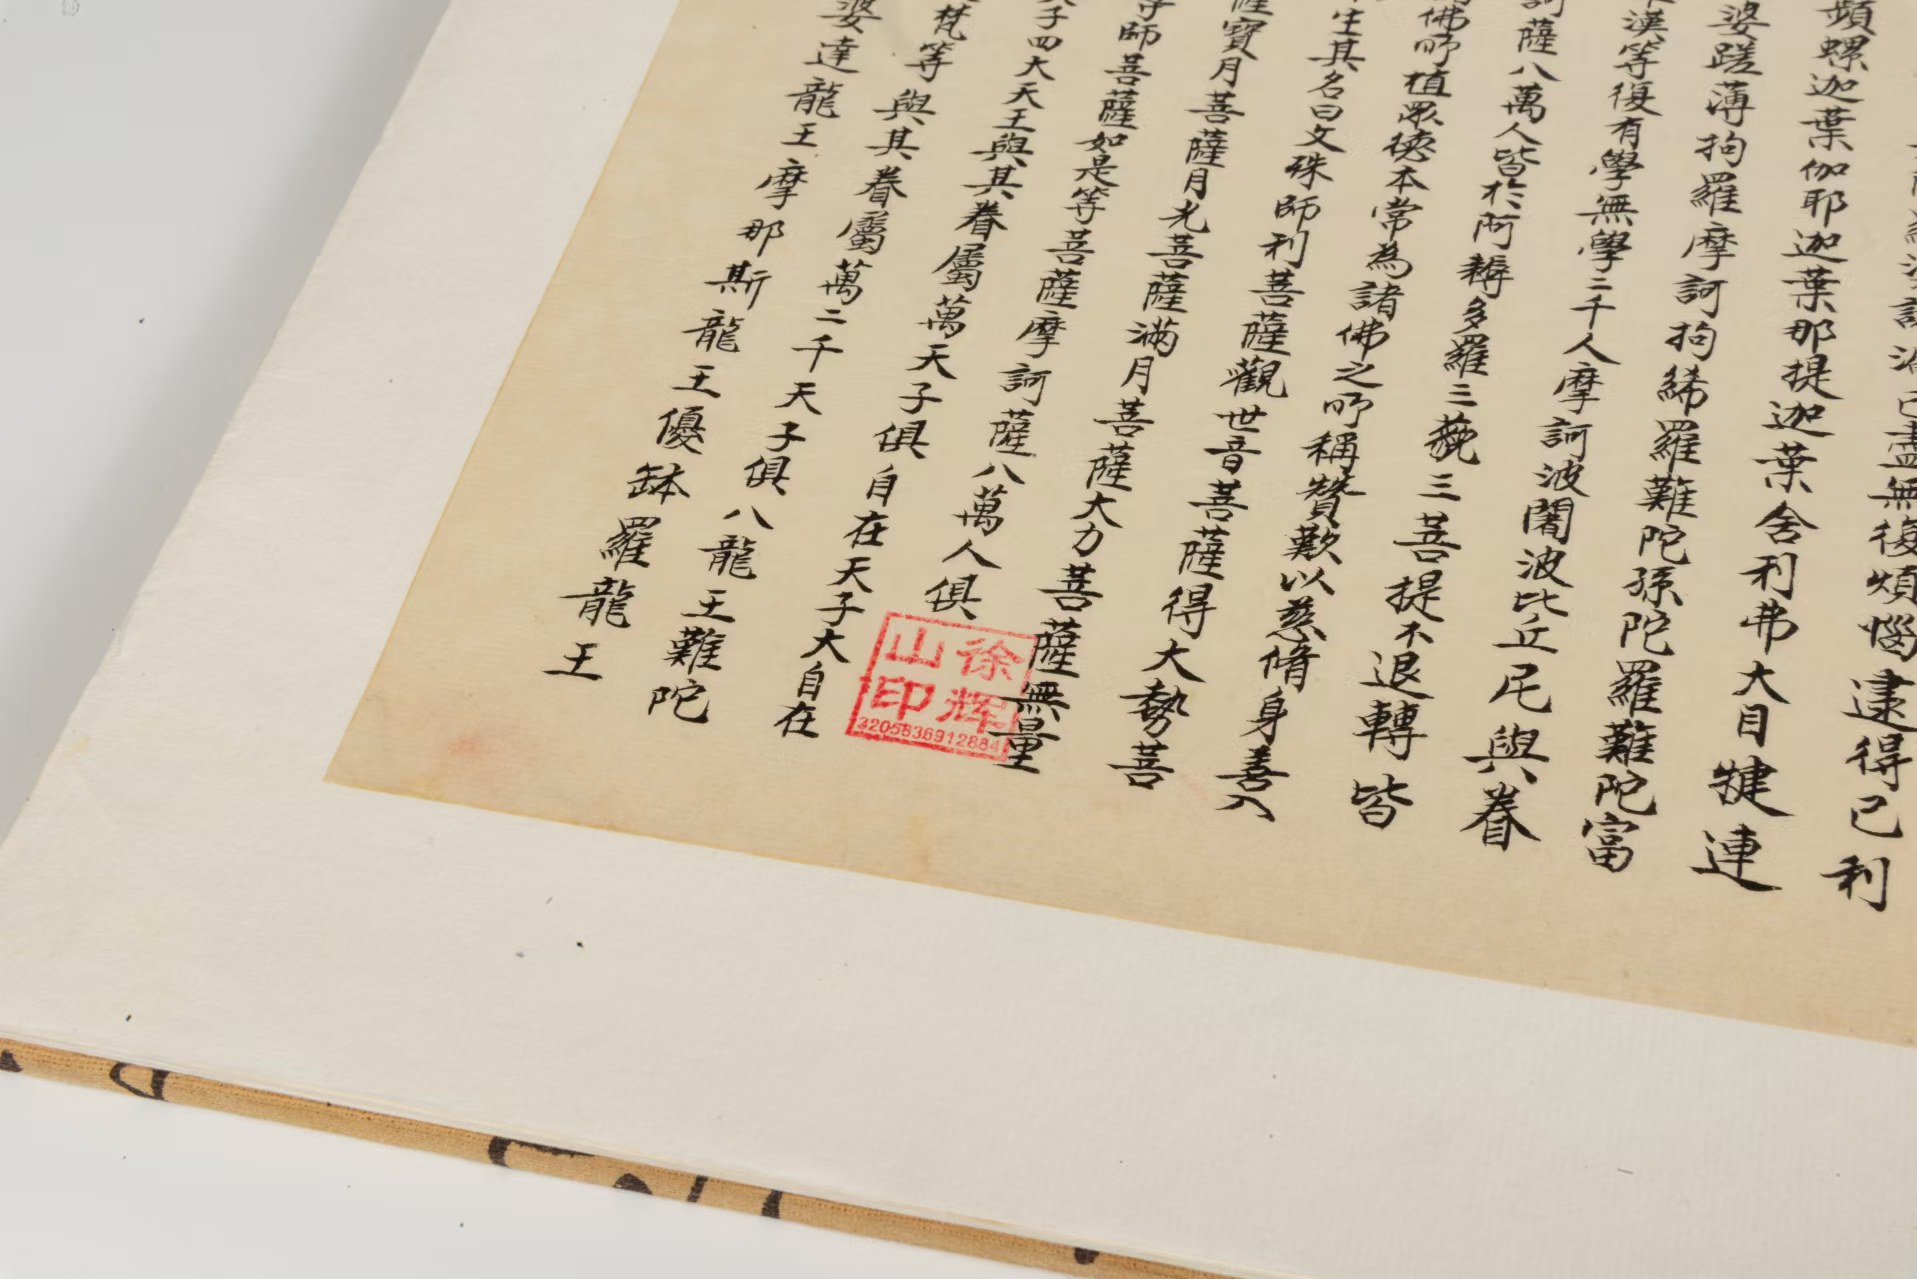 盡無復煩惱逮得己利
螺迦葉伽耶迦葉那提迦葉舍利弗大目犍連
婆蹉薄拘羅摩訶拘絺羅難陀孫陀羅難陀富
漢等復有學無學二千人摩訶波闍波比丘尼與眷
訶薩八萬人皆於阿耨多羅三藐三菩提不退轉皆
佛所植眾德本常為諸佛之所稱贊歎以慈脩身善入
生其名曰文殊師利菩薩觀世音菩薩得大勢菩
寶月菩薩月光菩薩滿月菩薩大力菩薩無量
師菩薩如是等菩薩摩訶薩八萬人俱
子四大天王與其眷屬萬天子俱自在天子大自在
梵等與其眷屬萬二千天子俱八龍王難陀
婆達龍王摩那斯龍王優缽羅龍王
徐辉
山印
3205836912884